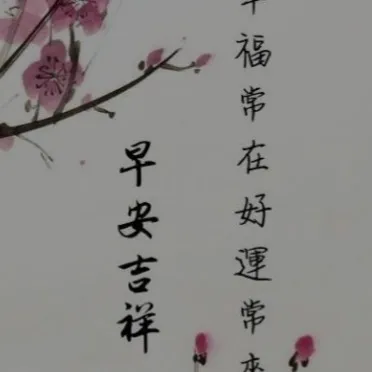 幸福常在好運常來
早安吉祥